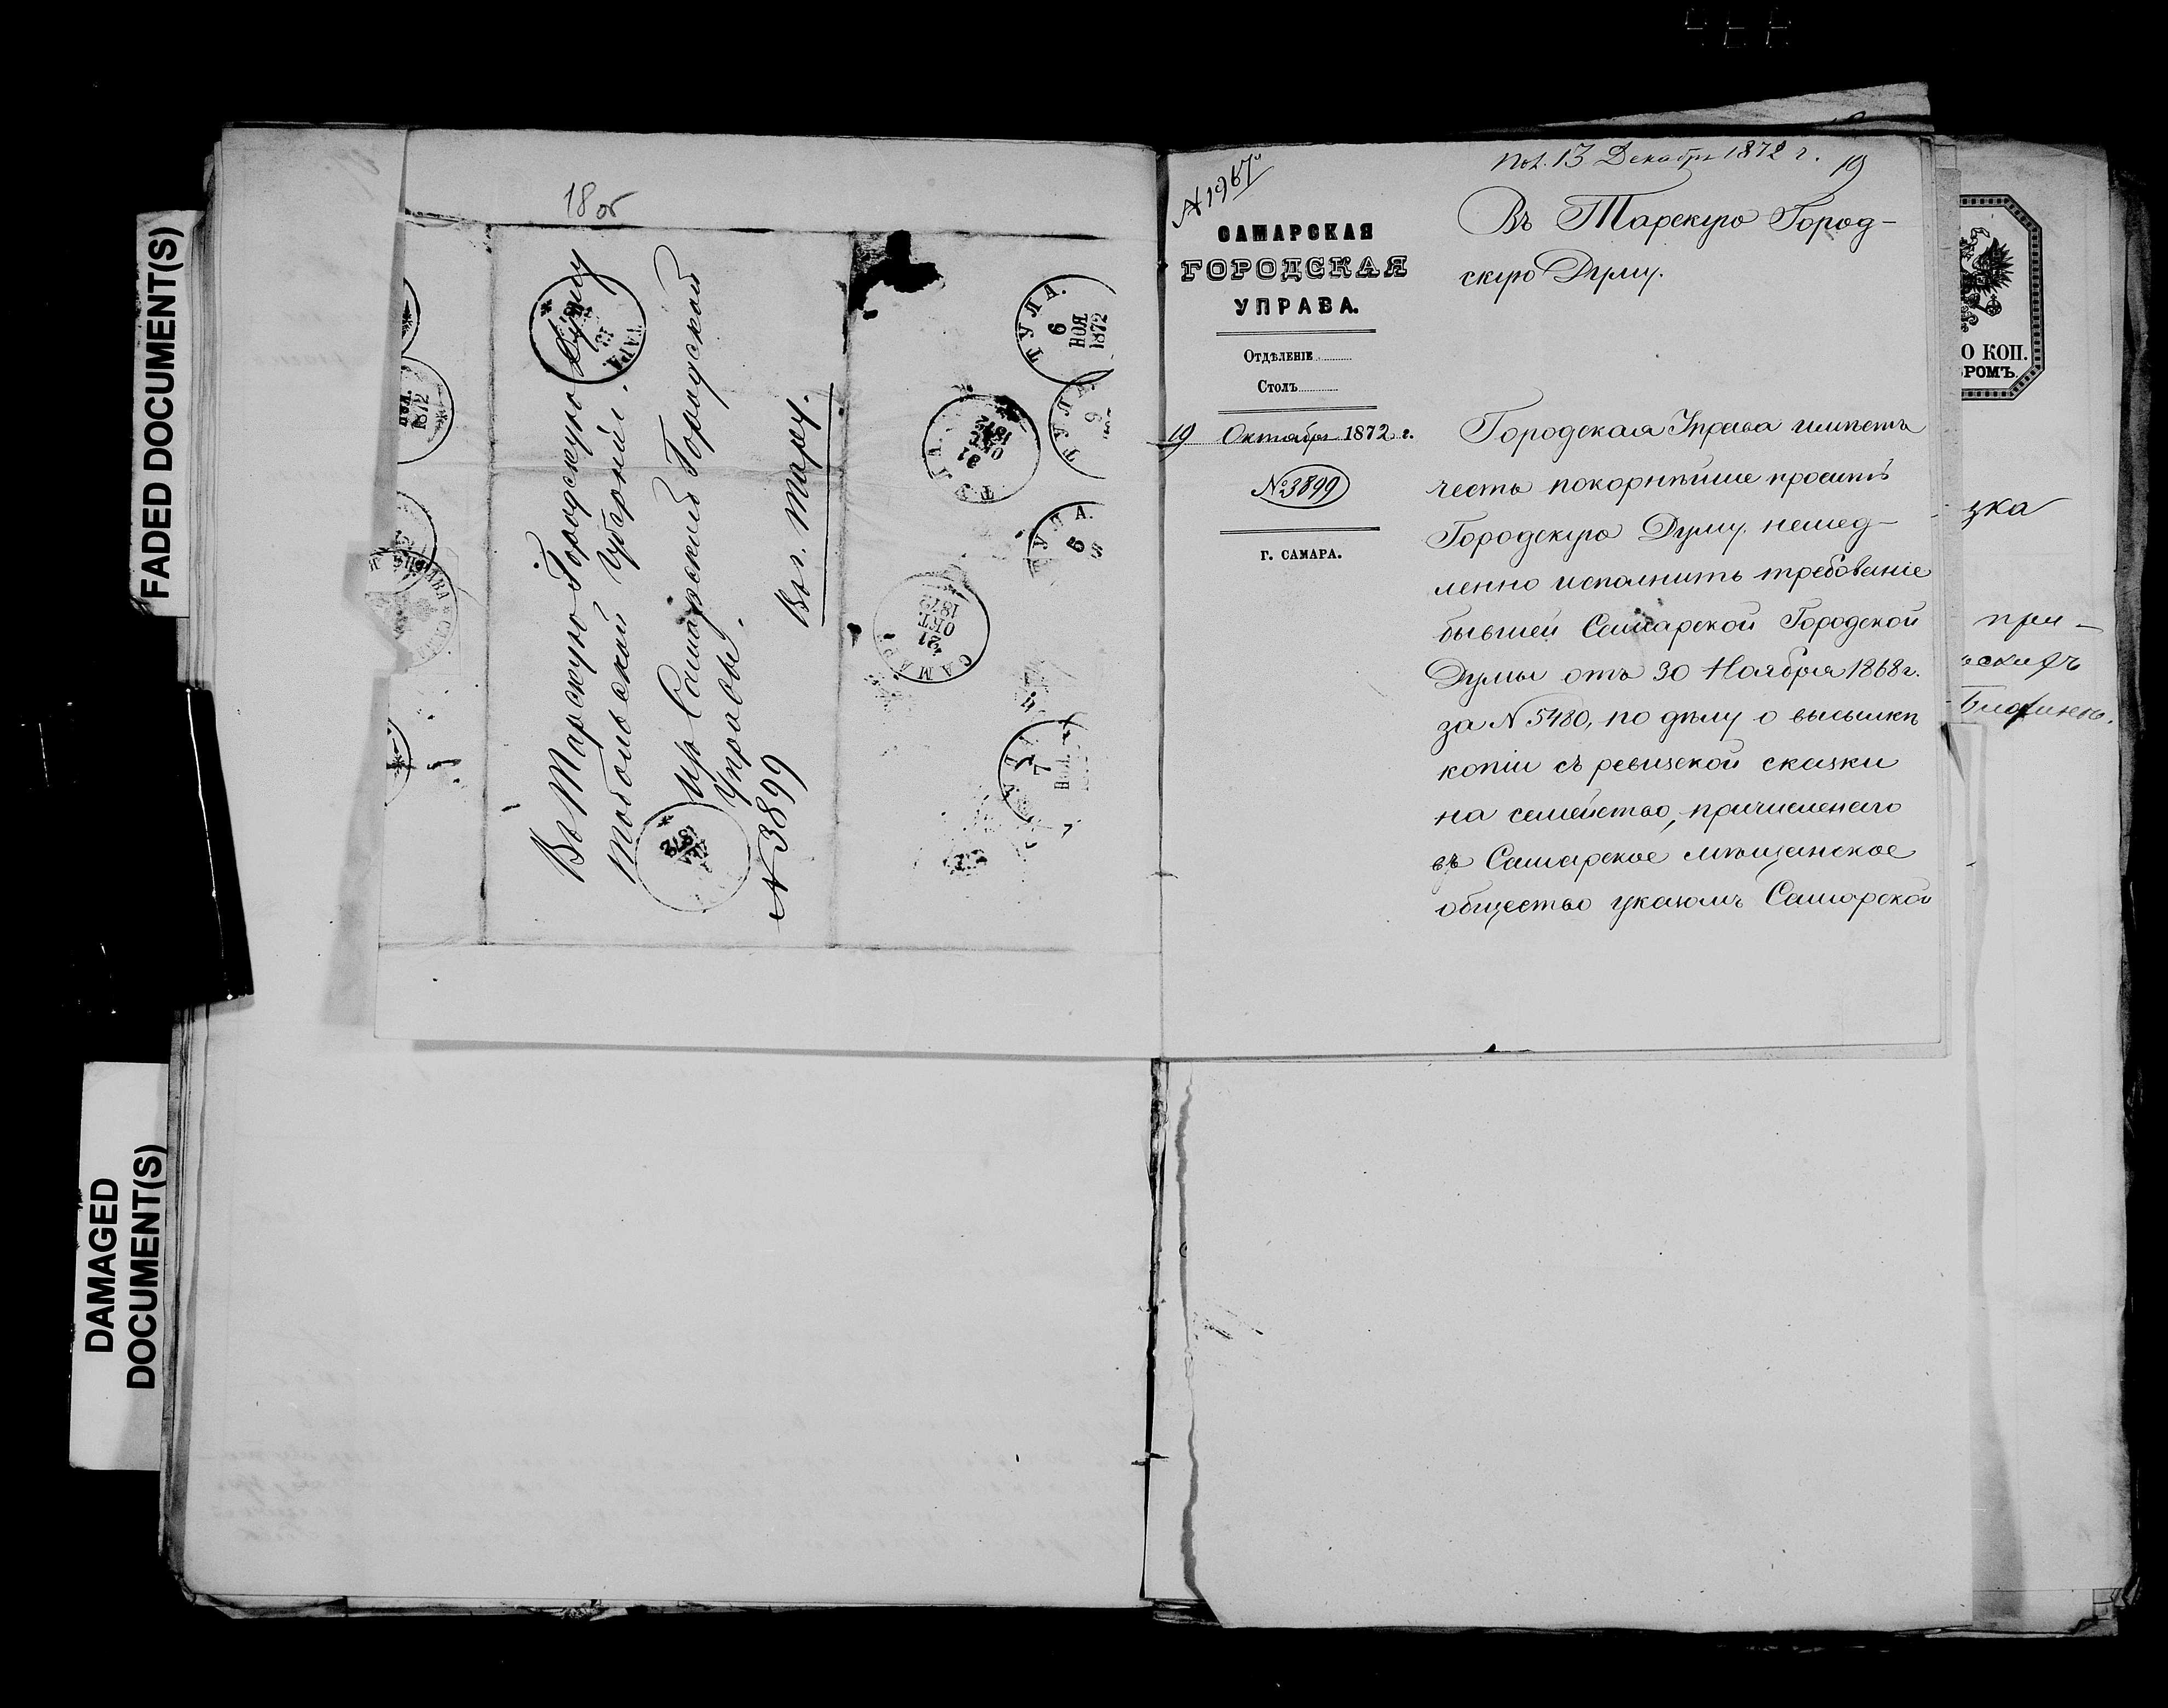 FADED DOCUMENT(S)
DAMAGED
DOCUMENT(S)
18 об
Въ Тарскую Городскую Думу
Тобольской Губерніи.
изъ Самарской Городской
Управы.
N 3899
Въ г. Тару.
ТАРА
ТУЛА.
6
НОЯ
1872
ТУЛА.
9
ТУЛА
31
ОКТ
1872
ТУЛА.
5
САМАРА
21
ОКТ
1872
7
1872
1872
N 1967
Пол. 13 Декабря 1872 г.
19
САМАРСКАЯ
ГОРОДСКАЯ
УПРАВА.
Отдѣленіе
Столъ
19 Октября 1872 г.
№ 3899
Г. САМАРА.
Въ Тарскую Город-
скую Думу.
Городская Управа имѣетъ
честь покорнѣйше просить
Городскую Думу немед-
ленно исполнить требованіе
бывшей Самарской Городской
Думы отъ 30 Ноября 1868 г.
за N 5480, по дѣлу о высылкѣ
копіи съ ревизской сказки
на семейство, причисленнаго
въ Самарское мѣщанское
общество указомъ Самарской
О КОП.
РОМЪ.
зка
при-